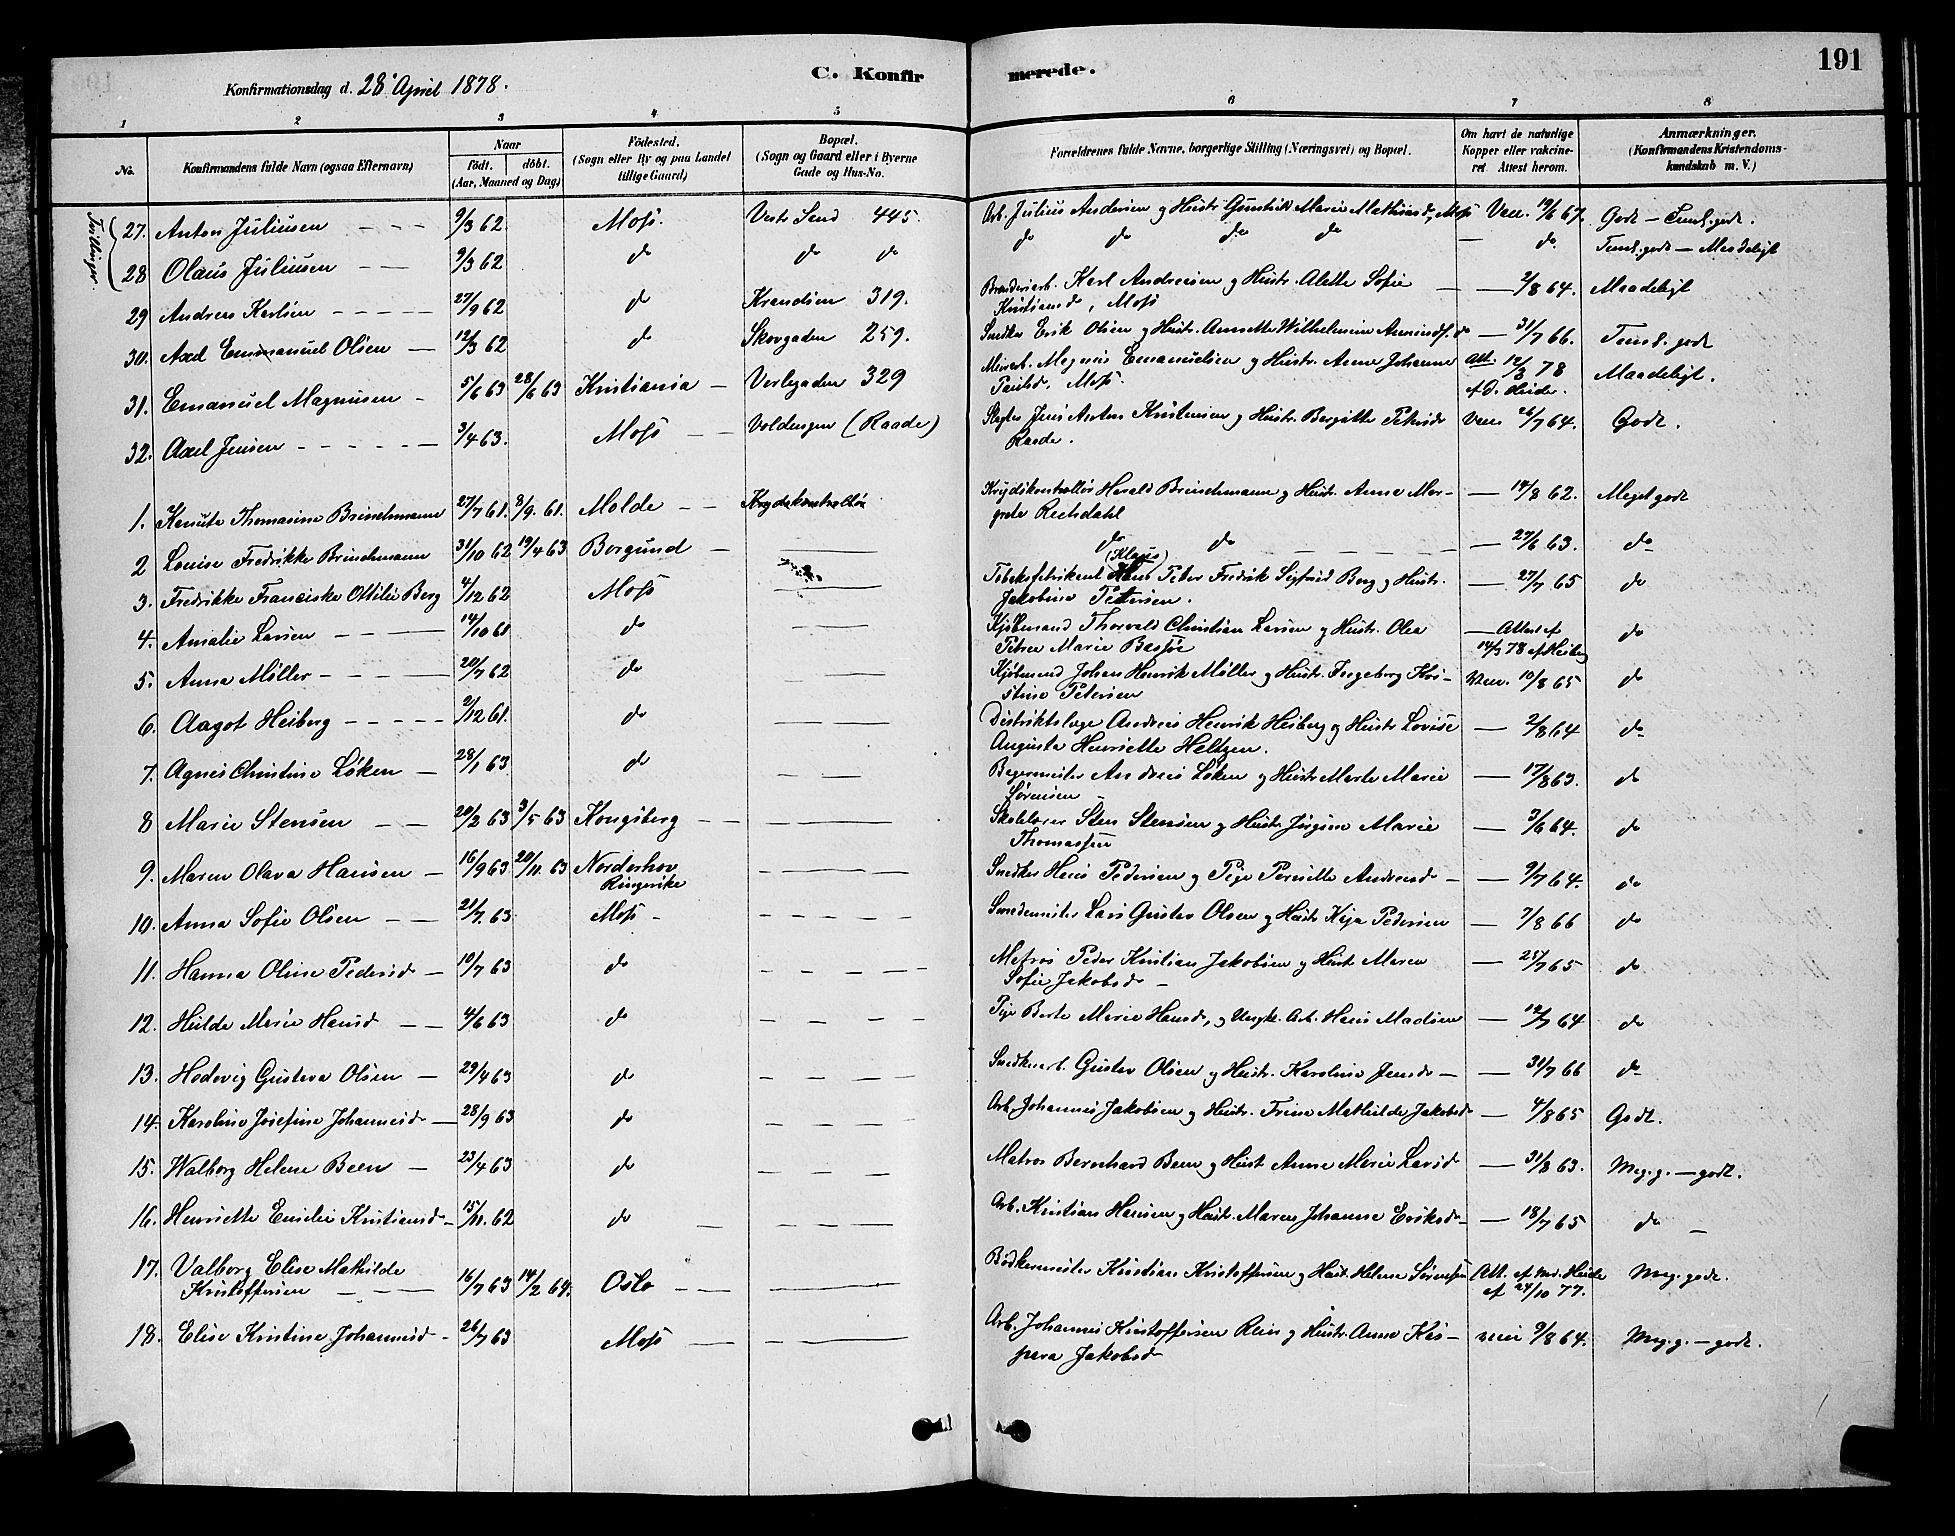 C. Konfirmerede. 191
Konfirmationsdag d. 28. April 1878.
1 2 3 4 5 6 7 8
No. Konfirmandens fulde Navn (ogsaa Efternavn) Naar födt. döbt. (Aar, Maaned og Dag) Födested. (Sogn eller By og paa Landet tillige Gaard) Bopæl. (Sogn og Gaard eller i Byerne Gade og Hus-No. Forældrenes fulde Navne, borgerlige Stilling (Næringsvei) og Bopæl. Om havt de naturlige Kopper eller vakcineret Attest herom. Anmærkninger. (Konfirmandens Kristendomskundskab m. V.)
Tvillinger
27. Anton Juliusen 9/3 62 Moss. Vestr Sund 445. Arb. Julius Andersen og Hustr. Marie Mathiasd, Moss Vacc. 19/6 67. Godt – Temel. godt.
28 Olaus Juliusen 9/3 62 do do do do do do do do Temel. godt – Maadeligt
29 Andreas Karlsen 27/9 62 do Kransen 319. Karl Andreasen og Hustr. Alette Sofie
Kristiansd, Moss 2/8 64. Maadeligt
30. Axel Emmanuel Olsen 12/3 62 do Skovgaden 259. Snedker Erik Olsen og Hustr. Annette Wilhelmine do 31/7 66. Temel. godt
31. Emanuel Magnusen 5/6 63 28/6 63 Kristiania Verlegaden 329 Magnus Emanuelsen og Hustr. Anne Johanne
Paulsd, Moss. Att. 12/3 78 Maadeligt.
32. Axel Jensen 3/4 63. Moss Voldengen (Raade) Jens Anton Kristensen og Hustr. Bergitte Petersd
Raade. Vacc 26/7 64. Godt.
1. Kenute Thomasine Brinchmann 27/7 61. 8/9. 61. Molde Krydskontrollør Krydskontrollør Harald Brinchmann og Hustr. Anna Margrete
Rechsdahl 14/8 62. Meget godt
2 Louise Fredrikke Brinchmann 31/10 62 19/4 63 Borgund do do 27/6 63. do
3. Fredrikke Franciska Ottilie Berg 4/12 62 Moss (Klaus)
Tobaksfabrikant Peter Fredrik Sigfried Berg og Hustr.
Jakobine Pettersen. 27/7 65 do
4. Amalie Larsen 14/10 61 do Kjøbmand Thorvald Christian Larsen og Hustr. Olea
Petrea Marie Bassøe Attest af
14/3 78 af Heiberg do
5. Anna Møller 20/7 62 do Kjøbmand Johan Henrik Møller og Hustr. Ingeborg Kristine
Petersen Vacc. 10/8 65 do
6. Aagot Heiberg 2/12 61. do Distriktslæge Andreas Henrik Heiberg og Hustr Lovise
Augusta Henriette Heltzen. 2/8 64 do
7. Agnes Christine Løken 28/1 63 do Bagermester Andreas Løken og Hustr Marte Marie
Sørensen 17/8 63. do
8 Marie Stensen 20/2 63 3/5 63 Kongsberg Skolelærer Sten Stensen og Hustr Jørgine Marie
Thomassen 3/6 64. do
9. Maren Olava Hansen 16/9 63 20/11. 63 Norderhov
Ringerike Snedker Hans Pedersen og Pige Pernille Andreasd 9/7 64. do
10. Anna Sofie Olsen 21/7. 63 Moss Smedemester Lars Gustav Olsen og Hustr Kaja Pedersen 7/8 66 do
11. Hanna Oline Pedersd 10/7 63 do Matros Peder Kristian Jakobsen og Hustr Maren
Sofie Jakobsd 25/7 65 do
12. Hulda Marie Hansd 4/6 63 do Pige Berte Marie Hansd, og Ungk. Arb. Hans Madsen 12/7 64 do
13. Hedevig Gustava Olsen 29/4 63 do Snedkerarb. Gustav Olsen og Hustr. Karoline Jensd 31/7 66 do
14. Karoline Josefine Johannesd 28/9 63 do Arb. Johannes Jakobsen og Hustr. Trine Mathilde Jakobsd 4/8 65 Godt.
15. Walborg Helene Been 23/4 63 do Matros Bernhard Been og Hustr Anne Marie Larsd 31/8 63. Meg. g. – godt.
16. Henriette Emilie Kristiansd 15/11. 62 do Arb. Kristian Hansen og Hustr. Maren Johanne Eriksd 18/7 65 do
17. Valborg Elise Mathilde
Kristoffersen 16/7 63 14/2 64. Oslo Bødkermester Kristian Kristoffersen og Hustr. Helene Sørensen Att. af
af 24/10 77. Meg. godt.
18. Elise Kristine Johannesd 26/7 63 Moss Arb. Johannes Kristoffersen Rein og Hustr. Anne Kaspara
Jakobsd vacc 9/8 64. Meg. g. – godt.